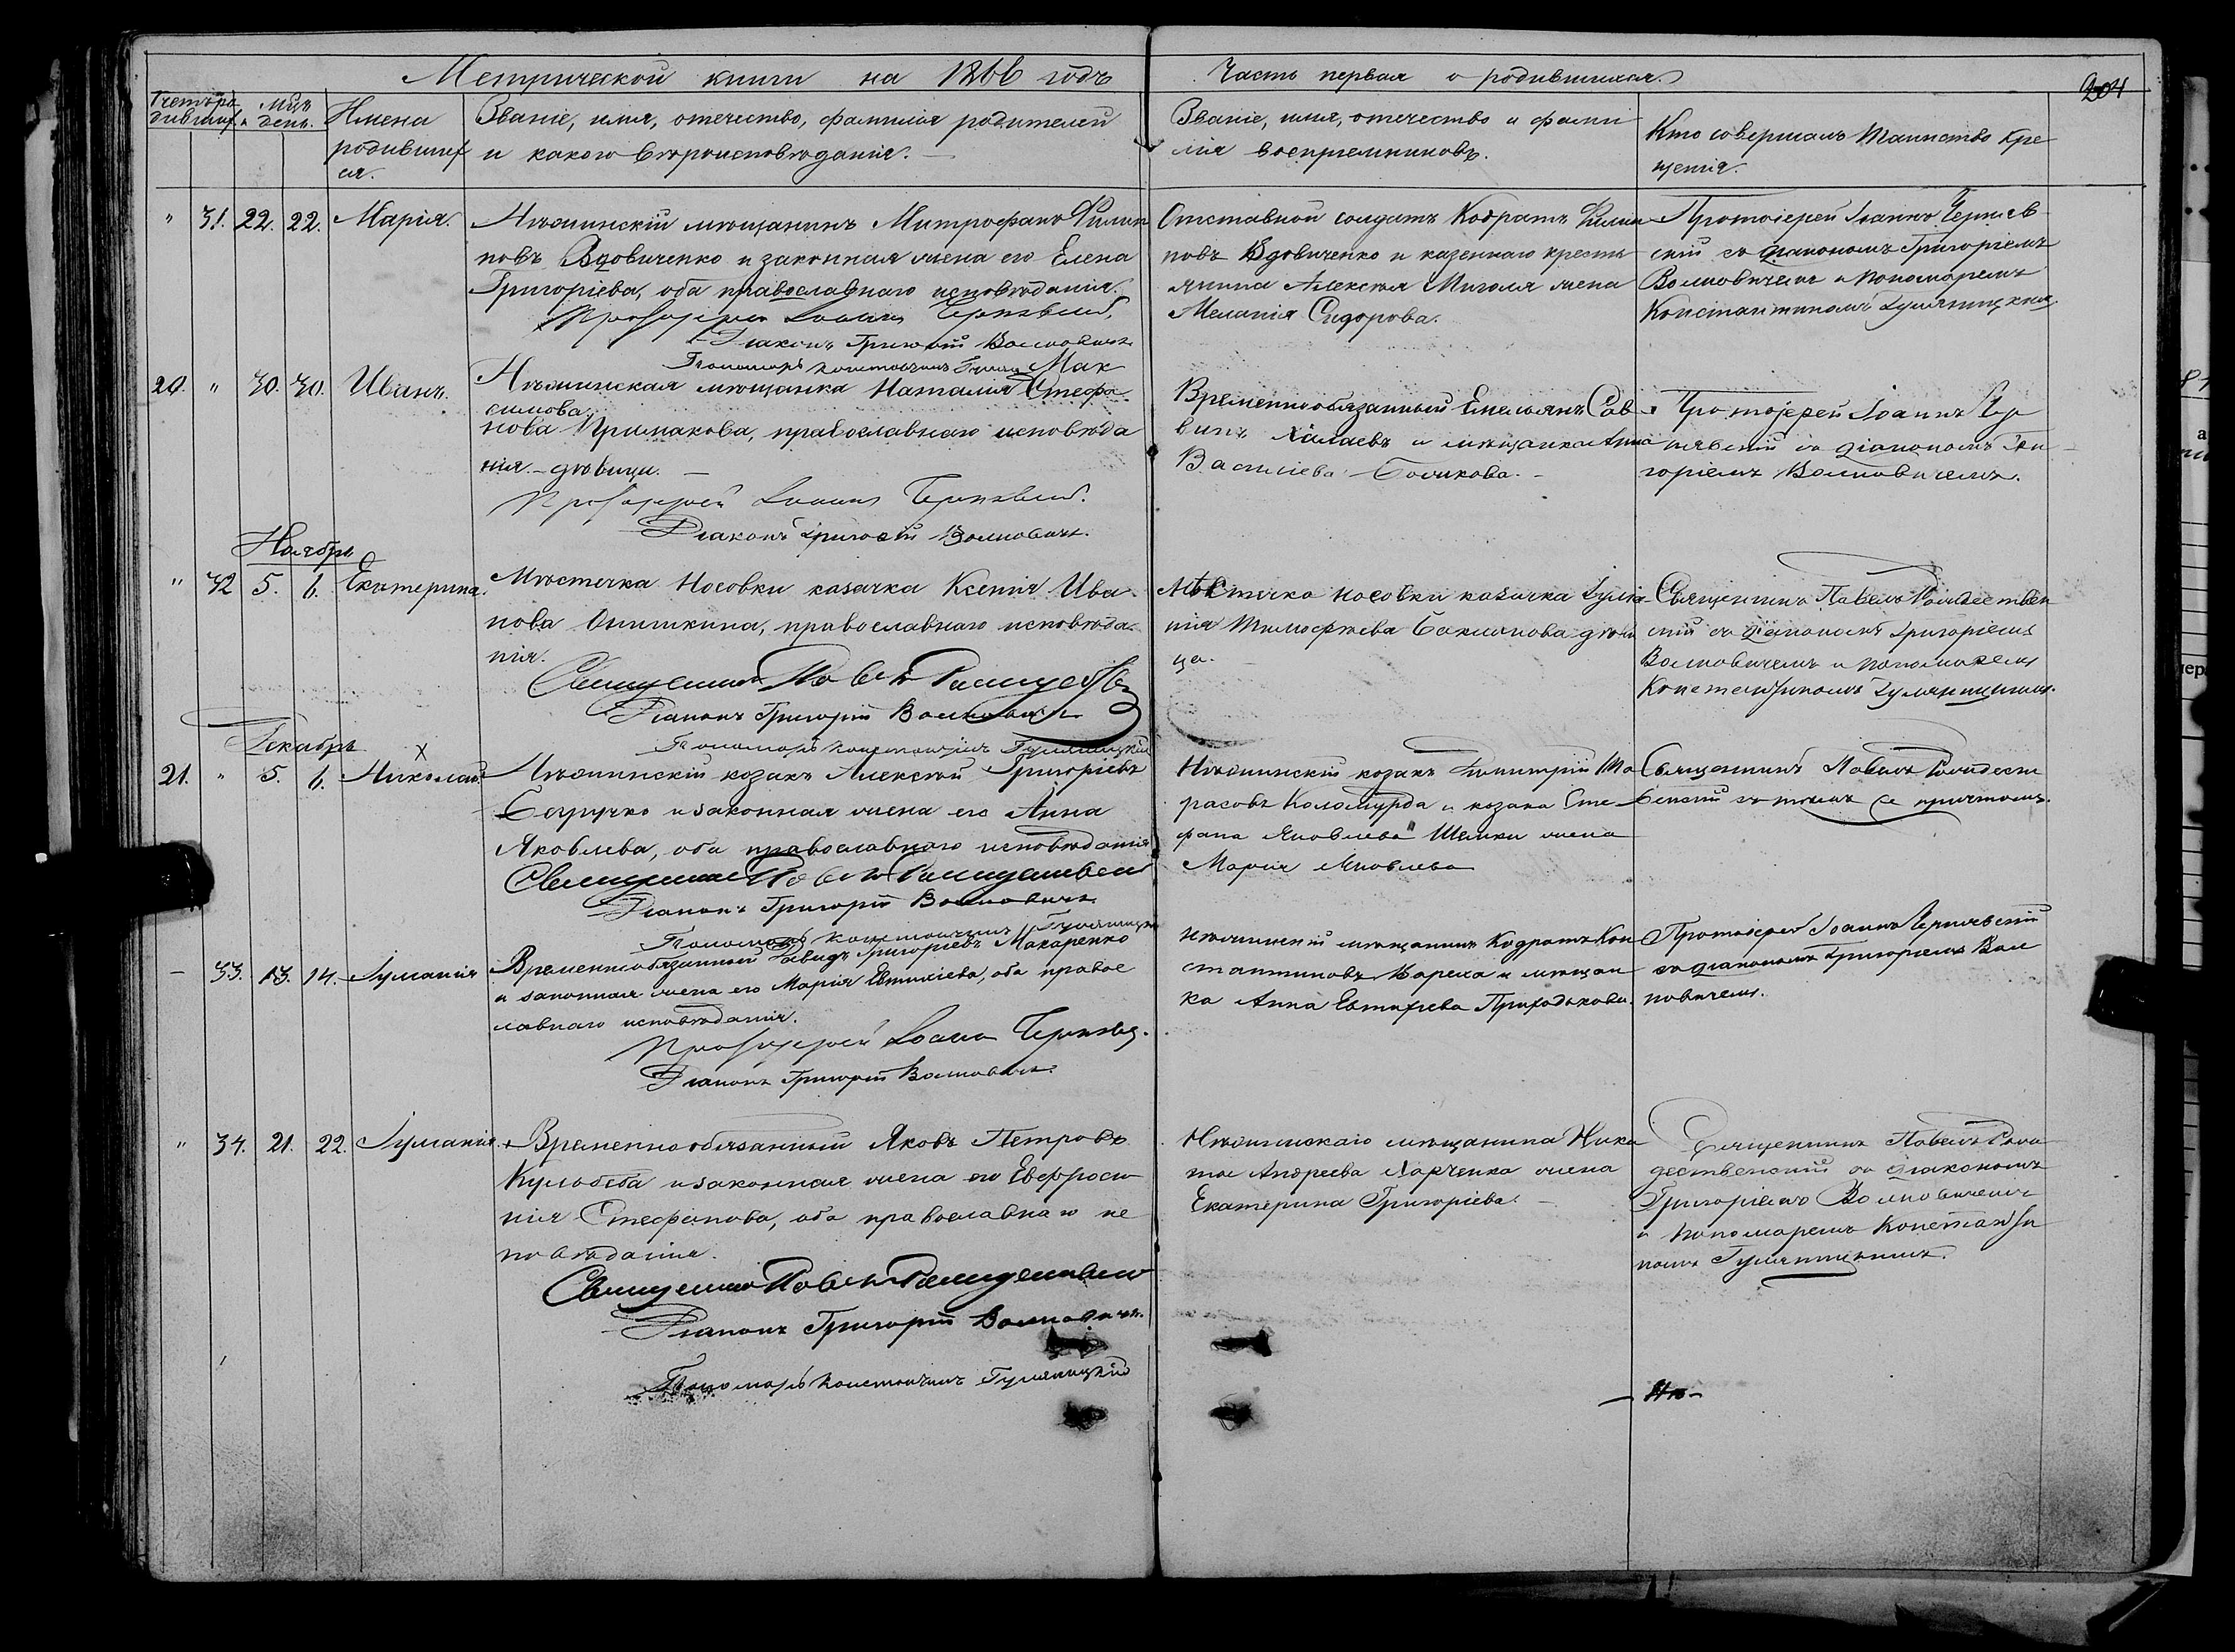 Метрической книги на 1866 годъ
Часть первая о родившихся.
204
Имена
родившихся.
Званіе, имя, отечество, фамилія родителей
и какого вѣроисповѣданія.
Званіе, имя, отечество и фами
лія воспріемниковъ.
Кто совершалъ таинство кре
щенія.
" 31. 22. 22. Марія.
Нѣжинскій мѣщанинъ Митрофанъ Филип
повъ Вдовиченко и законная жена его Елена
Григоріева, оба православнаго исповѣданія.
Протоіерей Іоаннъ Чернявскій
Діаконъ Григорій Волповичъ
Отставной солдатъ Кодратъ Филип
повъ Вдовиченко и казеннаго кресть
янина Алексѣя Миголя жена
Меланія Сидорова.
Протоіерей Іоаннъ Черняв
скій съ діакономъ Григоріемъ
Волповичемъ и пономаремъ
Константиномъ Гуляницкимъ.
20. " 30. 30. Иванъ.
Нѣжинская мѣщанка Наталія Мак
симова
Стефа
нова Примакова, православнаго исповѣда
нія. дѣвица.
Протоіерей Іоаннъ Чернявскій.
Діаконъ Григорій Волповичъ.
Временнообязанный Емельянъ Сав
винъ и мѣщанка Анна
Василіева
Протоіерей Іоаннъ Чер
нявскій съ діакономъ Гри
горіемъ Волповичемъ.
Ноябрь
" 32 5. 6. Екатерина.
Мѣстечка Носовки казачка Ксенія Ива
нова Онишкина, православнаго исповѣда
нія.
Священникъ Павелъ Рождественскій
Діаконъ Григорій Волповичъ
Пономарь Константинъ Гуляницкій
Мѣстечка Носовки казачка Іулiа
нія Тимофѣева Бакланова дѣви
ца.
Священникъ Павелъ Рождествен
скій съ діакономъ Григоріемъ
Волповичемъ и пономаремъ
Константиномъ Гуляницкимъ.
Декабрь
21. " 5. 6. Николай
Нѣжинскій козакъ Алексѣй Григоріевъ
и законная жена его Анна
Яковлева, оба православнаго исповѣданія
Священникъ Павелъ Рождественскій
Діаконъ Григорій Волповичъ
Пономарь Константинъ Гуляницкій
Нѣжинскій козакъ Димитрій Та
расовъ Коломурда и козака Сте
фана Яковлева Шемки жена
Марія Яковлева
Священникъ Павелъ Рождест
венскій съ тѣмъ же причтомъ.
33. 13. 14. Іуліанія
Временнообязанный Давидъ Григоріевъ Макаренко
и законная жена его Марія Евтихіева, оба правос
лавнаго исповѣданія.
Протоіерей Іоаннъ Чернявскій.
Діаконъ Григорій Волповичъ.
Нѣжинскій мѣщанинъ Кодратъ Кон
стантиновъ Карека и мѣщан
ка Анна Евтихіева Приходькова.
Протоіерей Іоаннъ Чернявскій
съ діакономъ Григоріемъ Вол
повичемъ.
" 34. 21. 22. Іуліанія.
Временнообязанный Яковъ Петровъ
Кулебаба и законная жена его Евфроси
нія Стефанова, оба православнаго ис
повѣданія.
Священникъ Павелъ Рождественскій
Діаконъ Григорій Волповичъ.
Пономарь Константинъ Гуляницкій
Нѣжинскаго мѣщанина Ники
ты Андреева Харченка жена
Екатерина Григоріева.
Священникъ Павелъ Рож
дественскій съ діакономъ
Григоріемъ Волповичемъ
и пономаремъ Константи
номъ Гуляницкимъ.